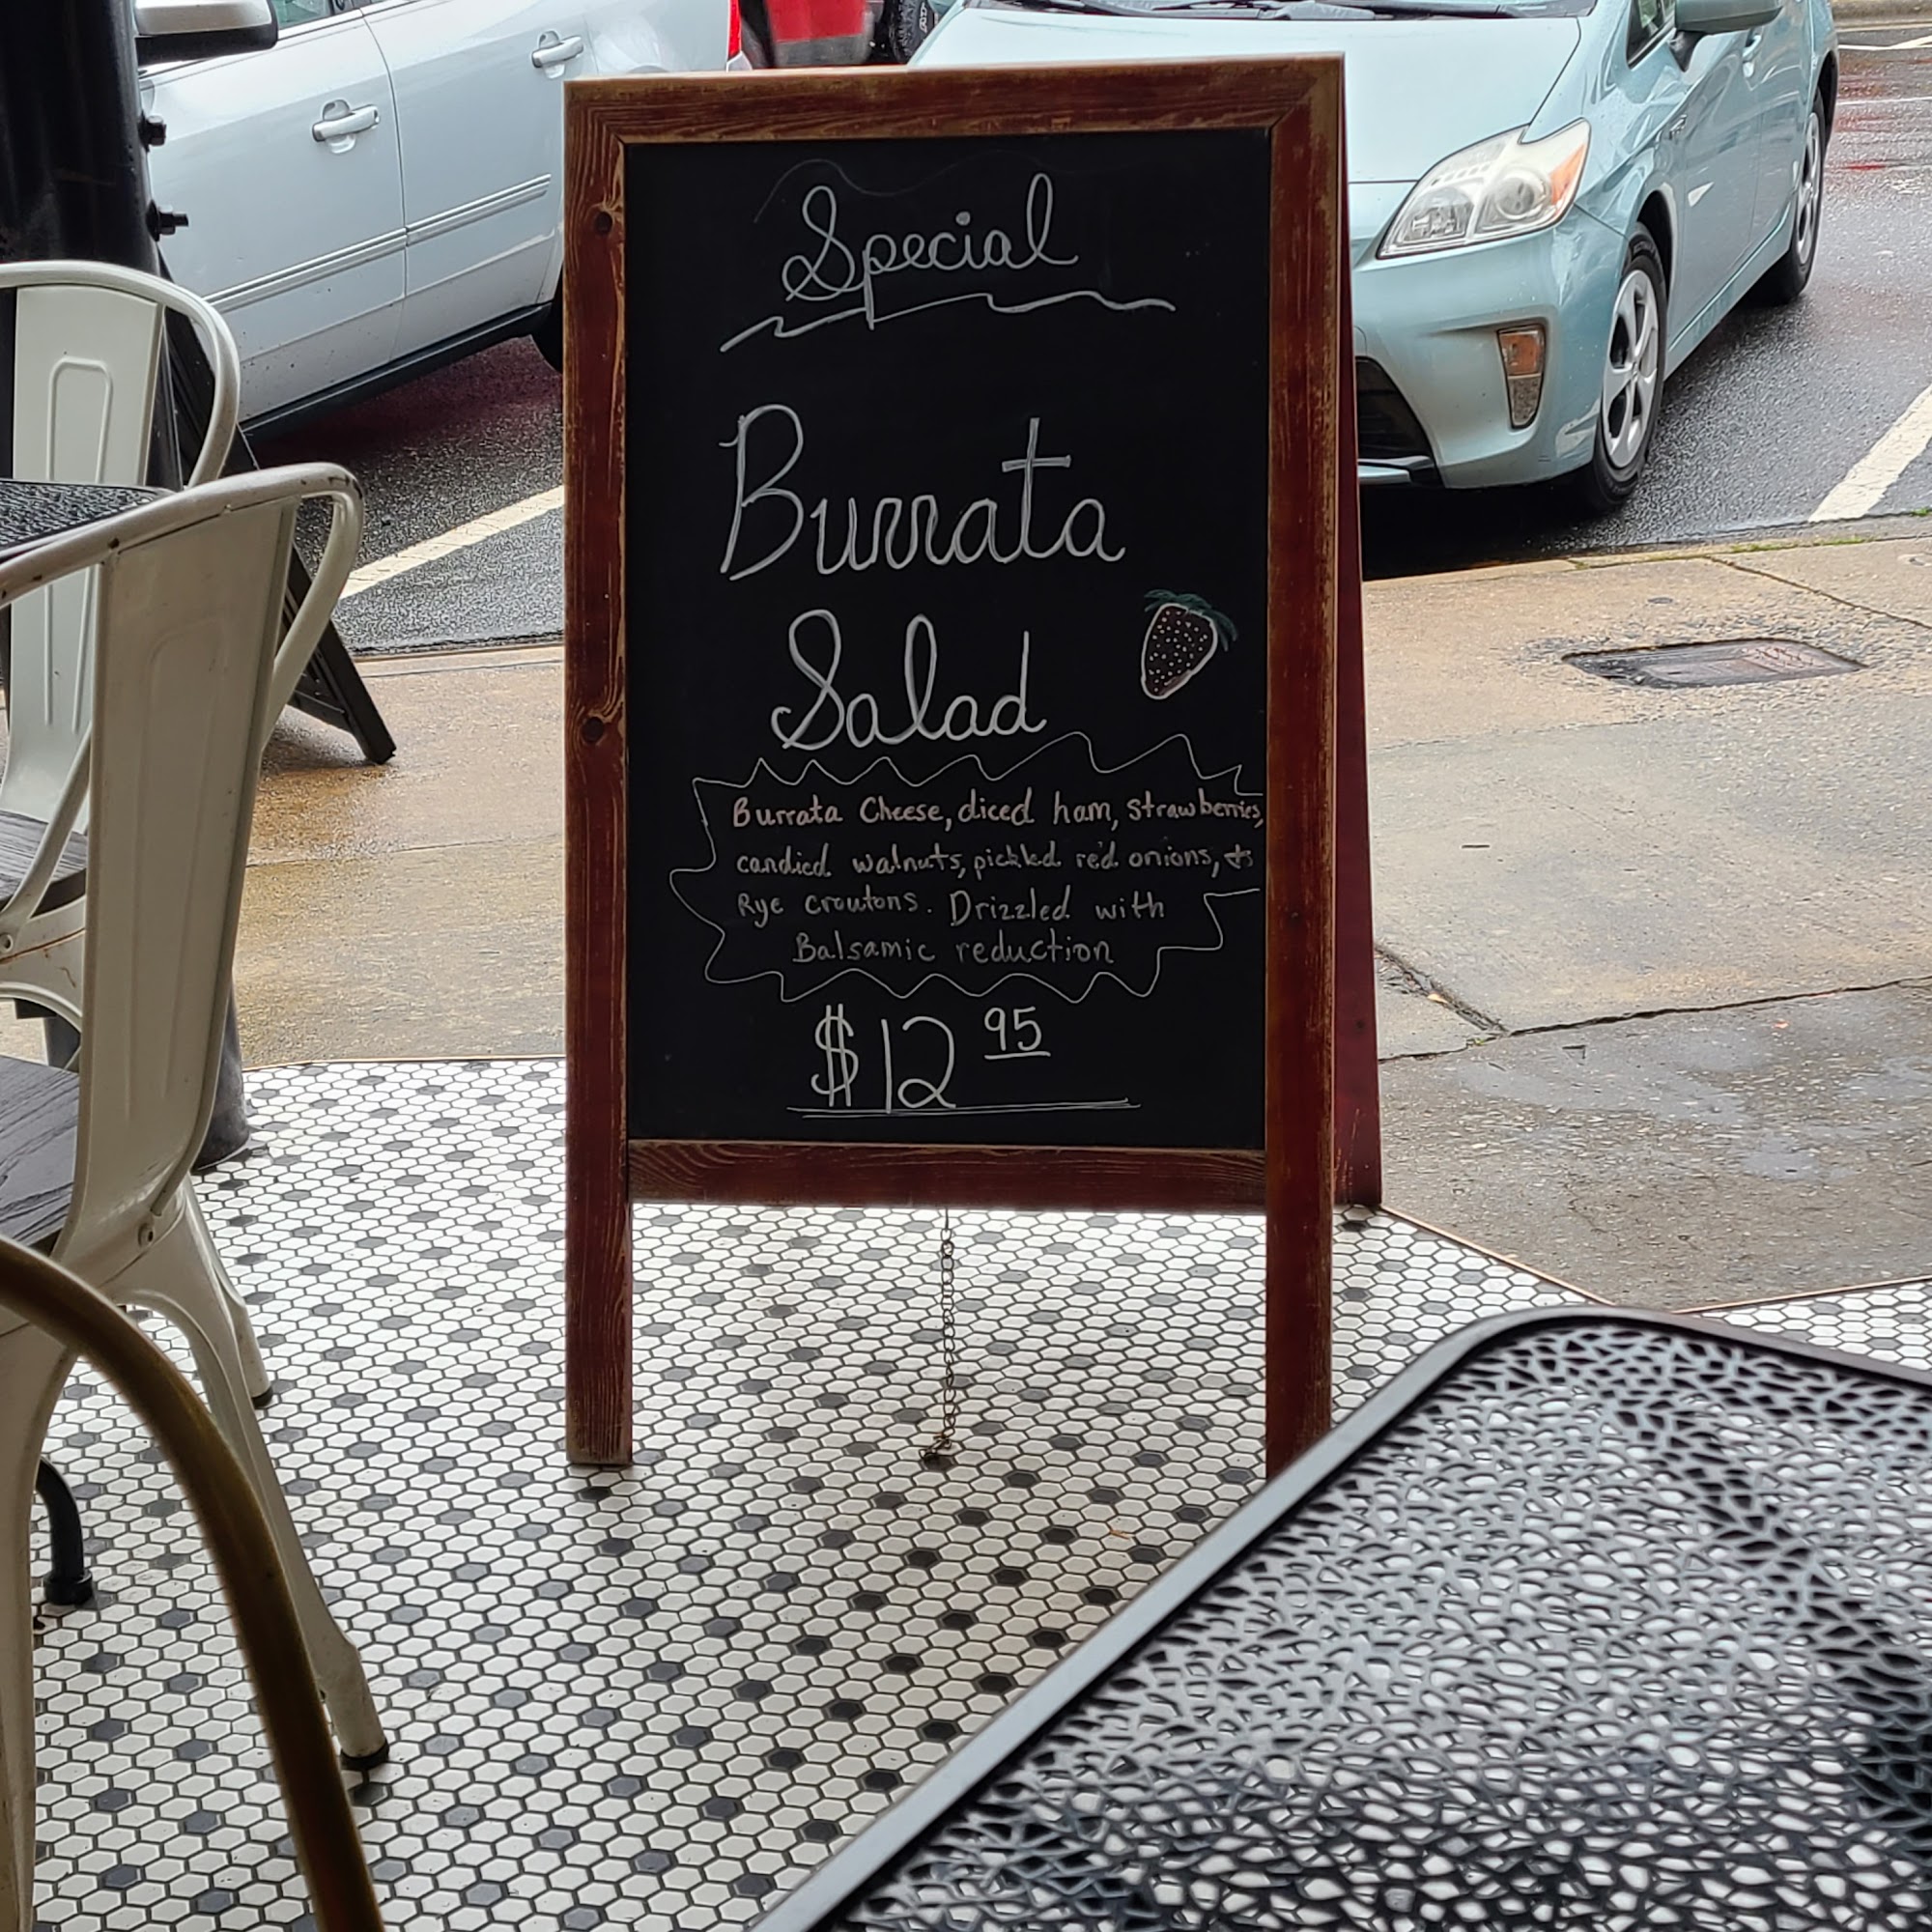 Special
Burrata
Salad
Burrata Cheese, diced ham, strawberries,
candied walnuts, pickled red onions, &
Rye croutons. Drizzled with
Balsamic reduction
$12 95